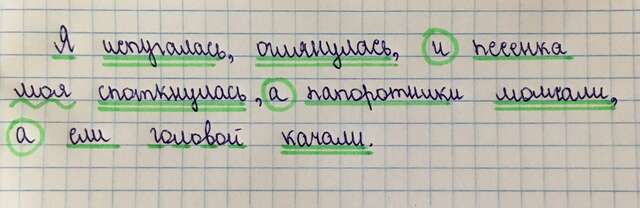 Я испугалась, оглянулась, и песенка
моя споткнулась, а папоротники молчали,
а ели головой качали.